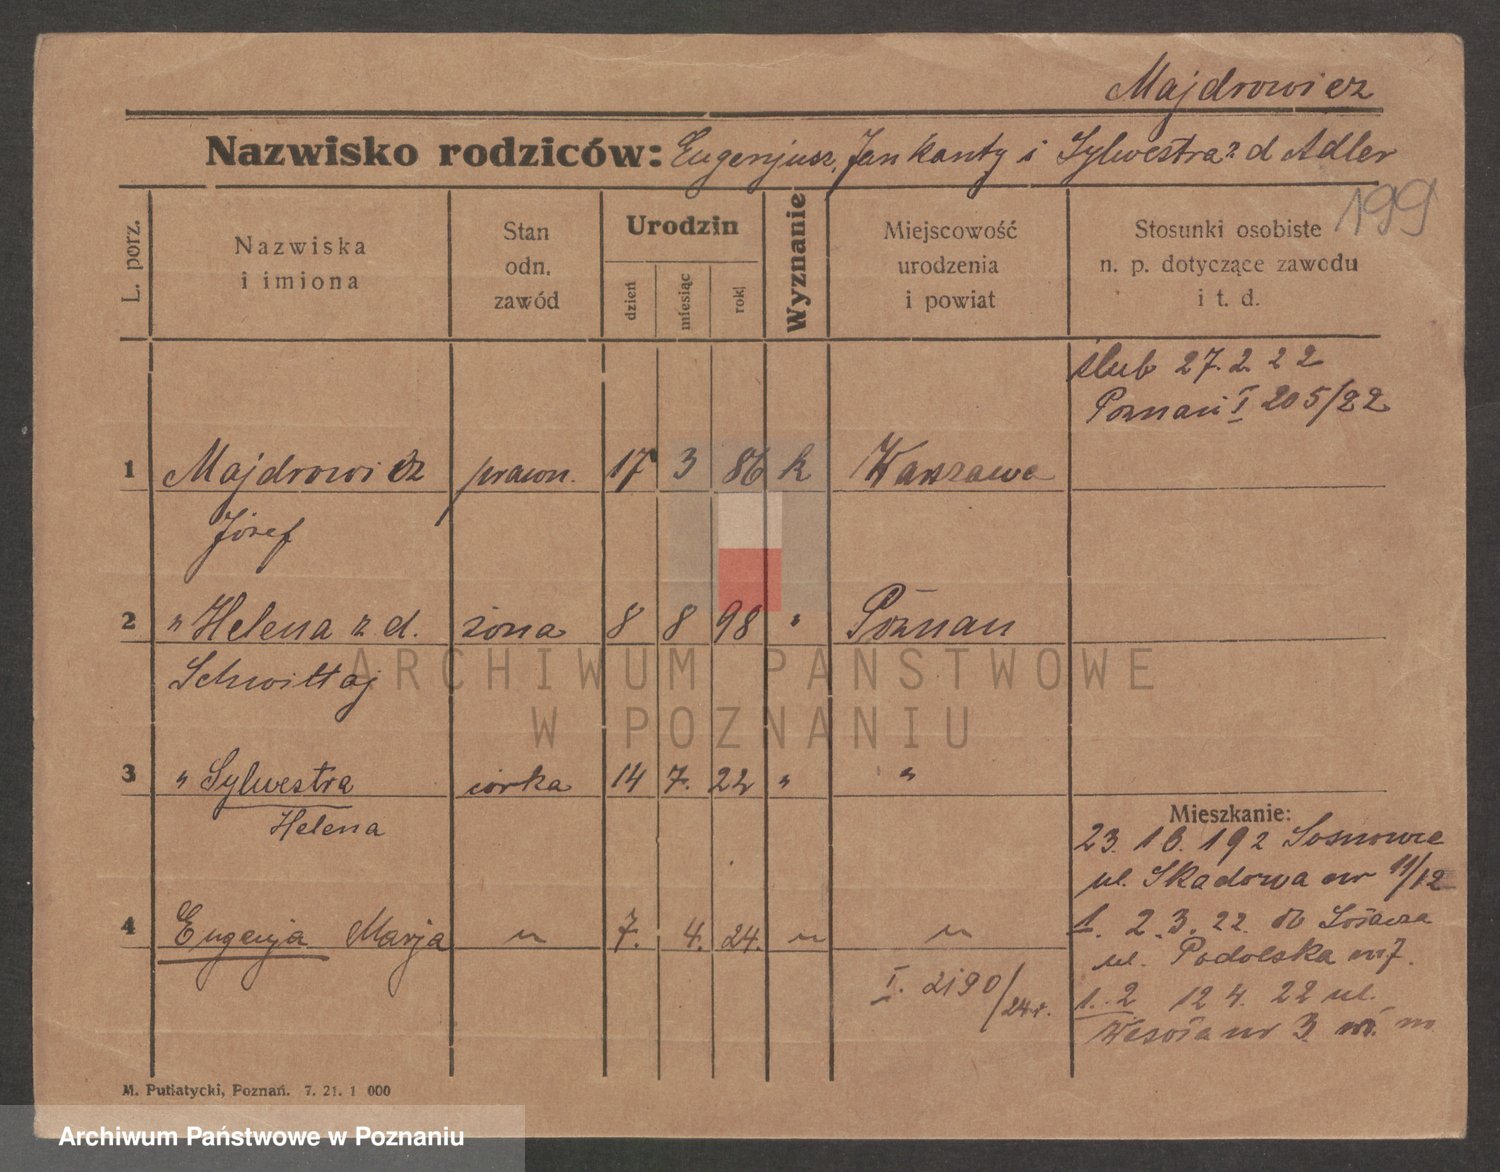 Majdrowicz
Nazwisko rodziców: Eugenjusz, Jan kanty i Sylwestra z d Adler
199
L. porz.
Nazwiska
i imiona
Stan
odn.
zawód
Urodzin
dzień
miesiąc
rok
Wyznanie
Miejscowość
urodzenia
i powiat
Stosunki osobiste
n. p. dotyczące zawodu
i t. d.
ślub 27. 2. 22
Poznań I 205/22
1 Majdrowicz prawn. 17 3 86 k Warszawa
Józef
2 " Helena z d. żona 8 8 98 " Poznań
Schwittaj
3 " Sylwestra córka 14 7. 22 " "
Helena
Mieszkanie:
23. 10. 192 Sosnowce
ul. Składowa nr 11/12
1. 2. 3. 22.
ul. Podolska nr 7.
4 Eugenja Marja " 7. 4. 24. " "
I. 2190/24 r.
1. . 2 12 4. 22 ul.
Wesoła nr 3
M. Putiatycki, Poznań. 7. 21. 1 000
ARCHIWUM PAŃSTWOWE
W POZNANIU
Archiwum Państwowe w Poznaniu